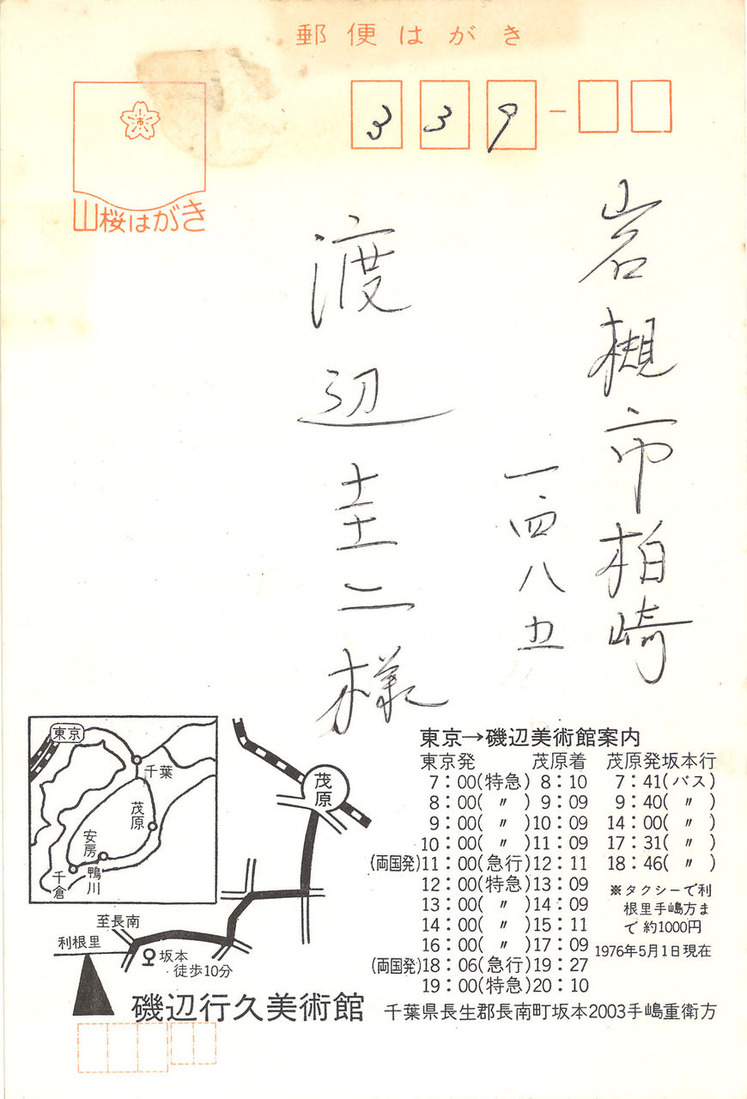 郵便はがき
339
山桜はがき
岩槻市柏崎
一四八五
渡辺圭二様
東京
千葉
茂原
安房
鴨川
千倉
茂原
至長南
利根里
坂本
徒歩10分
東京→磯辺美術館案内
東京発 茂原着 茂原発坂本行
7:00(特急) 8:10 7:41(バス)
8:00(〃) 9:09 9:40(〃)
9:00(〃) 10:09 14:00(〃)
10:00(〃) 11:09 17:31(〃)
(両国発)11:00(急行) 12:11 18:46(〃)
12:00(特急) 13:09
13:00(〃) 14:09
14:00(〃) 15:11
16:00(〃) 17:09
(両国発)18:06(急行) 19:27
19:00(特急) 20:10
※タクシーで利
根里手嶋方ま
で約1000円
1976年5月1日現在
磯辺行久美術館 千葉県長生郡長南町坂本2003手嶋重衛方